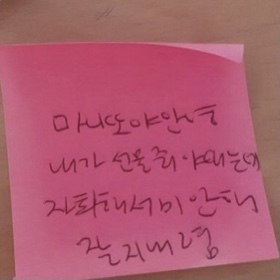 마니또야안녕
내가 선물줘야돼는데
지화해서미안해
잘지내렴